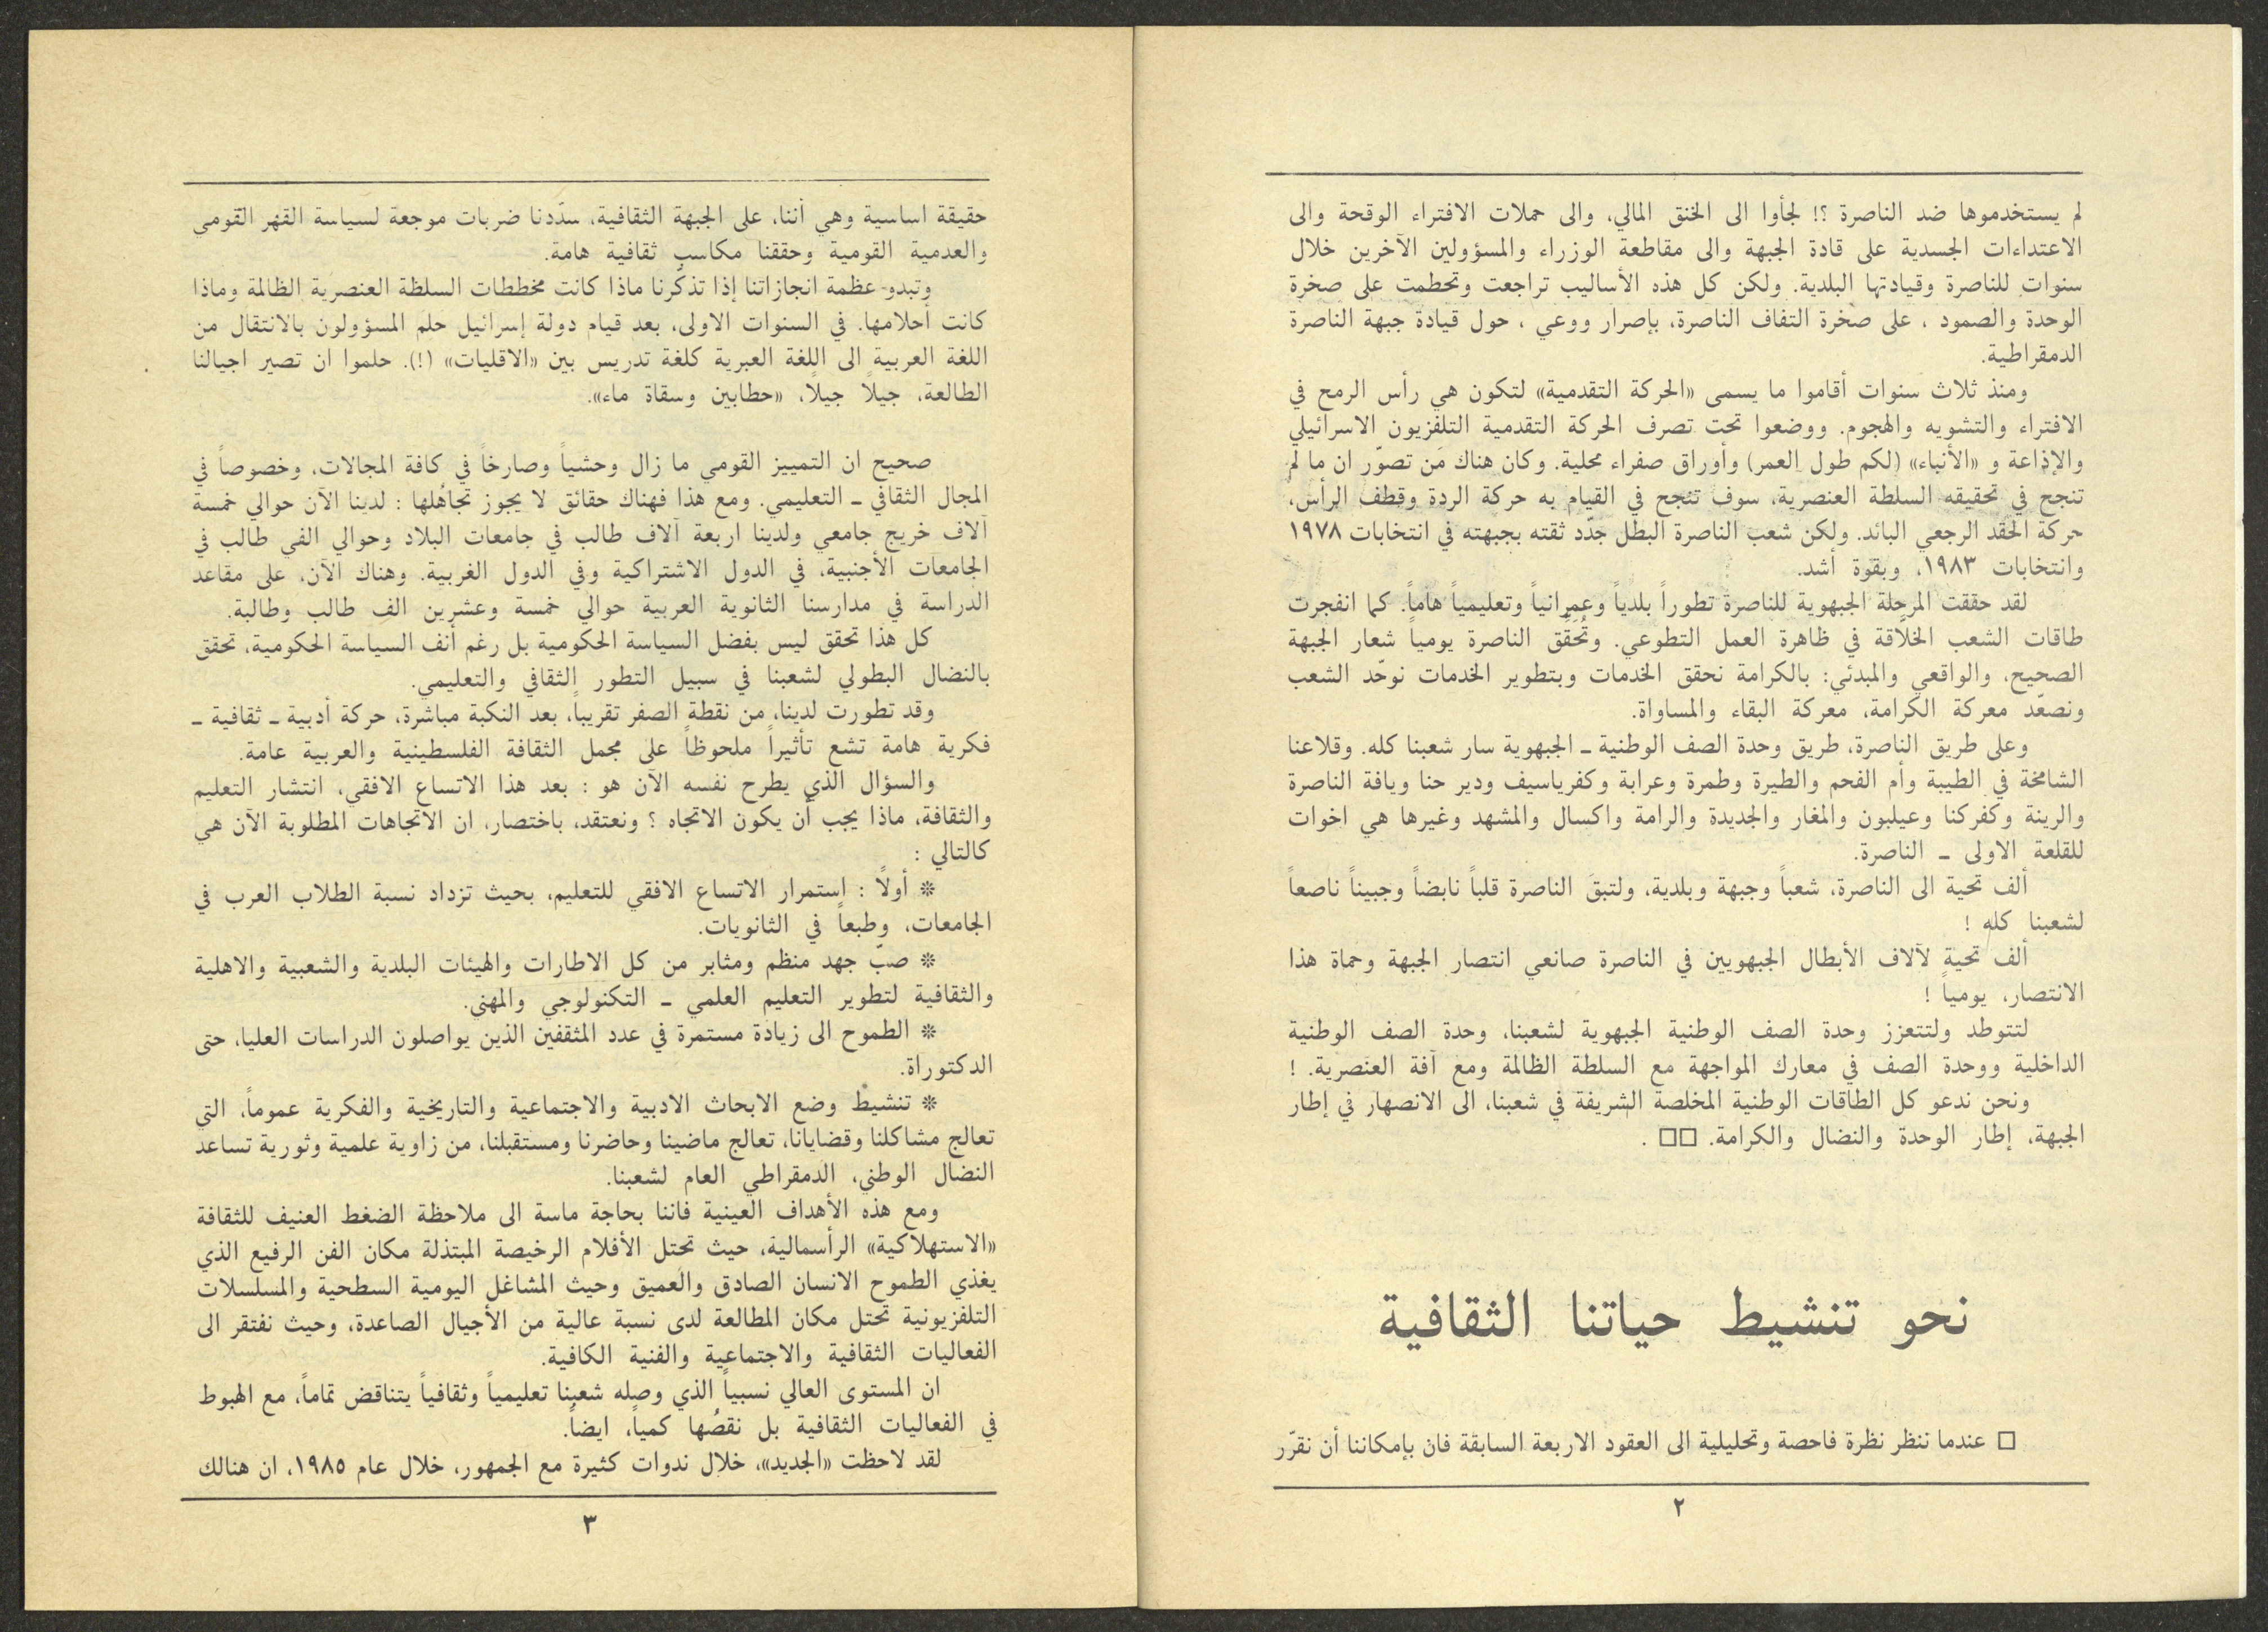 لم يستخدموها ضد الناصرة ؟! لجأوا الى الخنق المالي، والى حملات الافتراء الوقحة والى
الاعتداءات الجسدية على قادة الجبهة والى مقاطعة الوزراء والمسؤولين الآخرين خلال
سنوات للناصرة وقيادتها البلدية. ولكن كل هذه الأساليب تراجعت وتحطمت على صخرة
الوحدة والصمود ، على صخرة التفاف الناصرة، بإصرار ووعي ، حول قيادة جبهة الناصرة
الدمقراطية.
ومنذ ثلاث سنوات أقاموا ما يسمى «الحركة التقدمية» لتكون هي رأس الرمح في
الافتراء والتشويه والهجوم. ووضعوا تحت تصرف الحركة التقدمية التلفزيون الاسرائيلي
والإذاعة و «الأنباء» (لكم طول العمر) وأوراق صفراء محلية. وكان هناك مَن تصوّر ان ما لم
تنجح في تحقيقه السلطة العنصرية، سوف تنجح في القيام به حركة الردة وقطف الرأس،
حركة الحقد الرجعي البائد. ولكن شعب الناصرة البطل جدّد ثقته بجبهته في انتخابات ١٩٧٨
وانتخابات ١٩٨٣، وبقوة أشد.
لقد حققت المرحلة الجبهوية للناصرة تطوراً بلدياً وعمرانياً وتعليمياً هاماً. كما انفجرت
طاقات الشعب الخلاّقة في ظاهرة العمل التطوعي. وتُحَقِّق الناصرة يومياً شعار الجبهة
الصحيح، والواقعي والمبدئي: بالكرامة نحقق الخدمات وبتطوير الخدمات نوحّد الشعب
ونصعّد معركة الكرامة، معركة البقاء والمساواة.
وعلى طريق الناصرة، طريق وحدة الصف الوطنية ـ الجبهوية سار شعبنا كله. وقلاعنا
الشامخة في الطيبة وأم الفحم والطيرة وطمرة وعرابة وكفرياسيف ودير حنا ويافة الناصرة
والرينة وكفركنا وعيلبون والمغار والجديدة والرامة واكسال والمشهد وغيرها هي اخوات
للقلعة الاولى ـ الناصرة.
ألف تحية الى الناصرة، شعباً وجبهة وبلدية، ولتبقَ الناصرة قلباً نابضاً وجبيناً ناصعاً
لشعبنا كله !
ألف تحية لآلاف الأبطال الجبهويين في الناصرة صانعي انتصار الجبهة وحماة هذا
الانتصار، يومياً !
لتتوطد ولتتعزز وحدة الصف الوطنية الجبهوية لشعبنا، وحدة الصف الوطنية
الداخلية ووحدة الصف في معارك المواجهة مع السلطة الظالمة ومع آفة العنصرية. !
ونحن ندعو كل الطاقات الوطنية المخلصة الشريفة في شعبنا، الى الانصهار في إطار
الجبهة، إطار الوحدة والنضال والكرامة. □□ .
نحو تنشيط حياتنا الثقافية
□ عندما ننظر نظرة فاحصة وتحليلية الى العقود الاربعة السابقة فان بإمكاننا أن نقرّر
٢
حقيقة اساسية وهي أننا، على الجبهة الثقافية، سدّدنا ضربات موجعة لسياسة القهر القومي
والعدمية القومية وحققنا مكاسب ثقافية هامة.
وتبدو عظمة انجازاتنا إذا تذكّرنا ماذا كانت مخططات السلطة العنصرية الظالمة وماذا
كانت أحلامها. في السنوات الاولى، بعد قيام دولة إسرائيل حلم المسؤولون بالانتقال من
اللغة العربية الى اللغة العبرية كلغة تدريس بين «الاقليات» (!). حلموا ان تصير اجيالنا
الطالعة، جيلاً جيلاً، «حطابين وسقاة ماء».
صحيح ان التمييز القومي ما زال وحشياً وصارخاً في كافة المجالات، وخصوصاً في
المجال الثقافي ـ التعليمي. ومع هذا فهناك حقائق لا يجوز تجاهُلها : لدينا الآن حوالي خمسة
آلاف خريج جامعي ولدينا اربعة آلاف طالب في جامعات البلاد وحوالي الفي طالب في
الجامعات الأجنبية، في الدول الاشتراكية وفي الدول الغربية. وهناك الآن، على مقاعد
الدراسة في مدارسنا الثانوية العربية حوالي خمسة وعشرين الف طالب وطالبة.
كل هذا تحقق ليس بفضل السياسة الحكومية بل رغم أنف السياسة الحكومية، تحقق
بالنضال البطولي لشعبنا في سبيل التطور الثقافي والتعليمي.
وقد تطورت لدينا، من نقطة الصفر تقريباً، بعد النكبة مباشرة، حركة أدبية ـ ثقافية ـ
فكرية هامة تشع تأثيراً ملحوظاً على مجمل الثقافة الفلسطينية والعربية عامة.
والسؤال الذي يطرح نفسه الآن هو : بعد هذا الاتساع الافقي، انتشار التعليم
والثقافة، ماذا يجب أن يكون الاتجاه ؟ ونعتقد، باختصار، ان الاتجاهات المطلوبة الآن هي
كالتالي :
* أولاً : استمرار الاتساع الافقي للتعليم، بحيث تزداد نسبة الطلاب العرب في
الجامعات، وطبعاً في الثانويات.
* صبّ جهد منظم ومثابر من كل الاطارات والهيئات البلدية والشعبية والاهلية
والثقافية لتطوير التعليم العلمي ـ التكنولوجي والمهني.
* الطموح الى زيادة مستمرة في عدد المثقفين الذين يواصلون الدراسات العليا، حتى
الدكتوراة.
* تنشيط وضع الابحاث الادبية والاجتماعية والتاريخية والفكرية عموماً، التي
تعالج مشاكلنا وقضايانا، تعالج ماضينا وحاضرنا ومستقبلنا، من زاوية علمية وثورية تساعد
النضال الوطني، الدمقراطي العام لشعبنا.
ومع هذه الأهداف العينية فاننا بحاجة ماسة الى ملاحظة الضغط العنيف للثقافة
«الاستهلاكية» الرأسمالية، حيث تحتل الأفلام الرخيصة المبتذلة مكان الفن الرفيع الذي
يغذي الطموح الانسان الصادق والعميق وحيث المشاغل اليومية السطحية والمسلسلات
التلفزيونية تحتل مكان المطالعة لدى نسبة عالية من الأجيال الصاعدة، وحيث نفتقر الى
الفعاليات الثقافية والاجتماعية والفنية الكافية.
ان المستوى العالي نسبياً الذي وصله شعبنا تعليمياً وثقافياً يتناقض تماماً، مع الهبوط
في الفعاليات الثقافية بل نقصُها كمياً، ايضاً.
لقد لاحظت «الجديد»، خلال ندوات كثيرة مع الجمهور، خلال عام ١٩٨٥، ان هنالك
٣